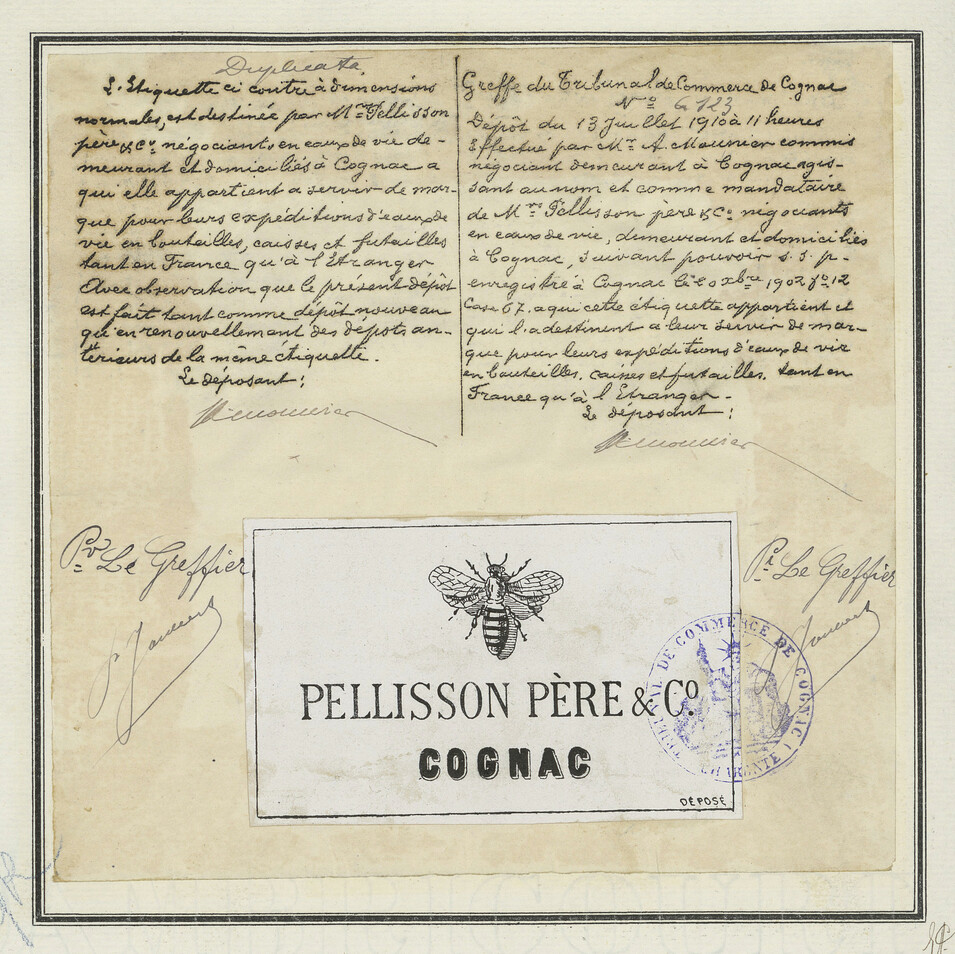 Duplicata
L'Etiquette ci contre à dimensions
normales, est destinée par Mrs Pellisson
père & Co négociants en eaux de vie de-
meurant et domiciliés à Cognac a
qui elle appartient a servir de mar-
que pour leurs expéditions d'eaux de
vie en bouteilles, caisses et futailles
tant en France qu'à l'Etranger
Avec observation que le présent dépôt
est fait tant comme dépôt nouveau
qu'en renouvellement des depots an-
térieurs de la même étiquette.
Le déposant:
Greffe du Tribunal de Commerce de Cognac
No 6723
Dépôt du 13 Juillet 1910 à 11 heures
Effectué par Mr A. Mounier commis
négociant demeurant à Cognac agis-
sant au nom et comme mandataire
de Mrs Pellisson père & Co négociants
en eaux de vie, demeurant et domiciliés
à Cognac, suivant pouvoir s.s.p.
enregistré à Cognac le xbre 1902 fo 12
Case 67. a qui cette étiquette appartient et
qui l'a destinent a leur servir de mar-
que pour leurs expéditions d'eaux de vie
en bouteilles. caisses et futailles. tant en
France qu'à l'Etranger.
Le déposant:
Pr Le Greffier
Pr Le Greffier
PELLISSON PÈRE & Co.
COGNAC
DÉPOSÉ
TRIBUNAL DE COMMERCE DE COGNAC
CHARENTE